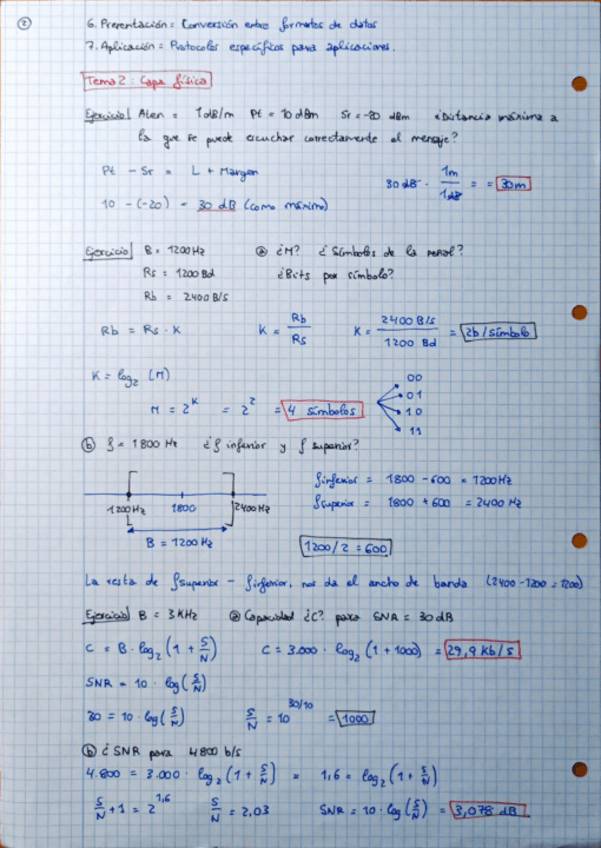 2
6. Presentación = Conversión entre formatos de datos
7. Aplicación = Protocolos específicos para aplicaciones.
Tema 2: Capa física
Ejercicio| Aten = 1 dB/m Pt = 10 dBm Sr = -20 dBm ¿Distancia máxima a
la que se puede escuchar correctamente el mensaje?
Pt - Sr = L + Margen
30 dB · 1m / 1dB = = 30m
10 - (-20) = 30 dB (como máximo)
Ejercicio| B = 1200 Hz ⓐ ¿M? ¿Símbolos de la señal?
Rs = 1200 Bd ¿Bits por símbolo?
Rb = 2400 B/s
Rb = Rs · K K = Rb / Rs K = 2400 B/s / 1200 Bd = 2b/símbolo
K = log₂ (M)
M = 2^K = 2^2 = 4 símbolos
00
01
10
11
ⓑ f = 1800 Hz ¿f inferior y f superior?
finferior = 1800 - 600 = 1200 Hz
fsuperior = 1800 + 600 = 2400 Hz
1200 Hz 1800 2400 Hz
B = 1200 Hz
1200/2 = 600
La resta de fsuperior - finferior, nos da el ancho de banda (2400 - 1200 = 1200)
Ejercicio| B = 3 KHz ⓐ Capacidad ¿C? para SNR = 30 dB
C = B · log₂ (1 + S/N) C = 3.000 · log₂ (1 + 1000) = 29,9 kb/s
SNR = 10 · log (S/N)
30 = 10 · log (S/N) S/N = 10^30/10 = 1000
ⓑ ¿SNR para 4800 b/s
4.800 = 3.000 · log₂ (1 + S/N) = 1,6 = log₂ (1 + S/N)
S/N + 1 = 2^1,6 S/N = 2,03 SNR = 10 · log (S/N) = 3,078 dB